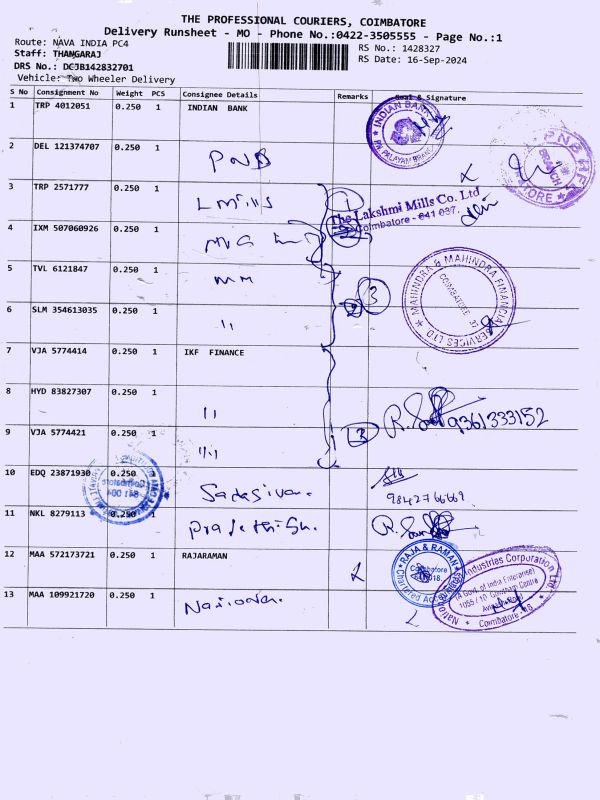 THE PROFESSIONAL COURIERS, COIMBATORE
Delivery Runsheet - MO - Phone No.:0422-3505555 - Page No.:1
Route: NAVA INDIA PC4
RS No.: 1428327
Staff: THANGARAJ
RS Date: 16-Sep-2024
DRS No.: DCJB142832701
Vehicle: Two Wheeler Delivery
S No Consignment No Weight PCS Consignee Details Remarks Seal & Signature
1 TRP 4012051 0.250 1 INDIAN BANK
INDIAN BANK
PN PALAYAM BRANCH
2 DEL 121374707 0.250 1 PNB
PNB
3 TRP 2571777 0.250 1 L Mills 1
The Lakshmi Mills Co. Ltd
Coimbatore - 641 037.
4 IXM 507060926 0.250 1
5 TVL 6121847 0.250 1 MM 3
MAHINDRA & MAHINDRA FINANCIAL SERVICES LTD
COIMBATORE 37
6 SLM 354613035 0.250 1 11
7 VJA 5774414 0.250 1 IKF FINANCE
8 HYD 83827307 0.250 1 11
9361333152
9 VJA 5774421 0.250 1 11
10 EDQ 23871930 0.250 1 Sadasivan.
9842766669
11 NKL 8279113 0.250 1
12 MAA 572173721 0.250 1 RAJARAMAN
RAJA & RAMAN
Coimbatore
641 018.
Chartered Accountants
13 MAA 109921720 0.250 1 National.
Industries Corporation Ltd
(A Govt. of India Enterprise)
Coimbatore - 18